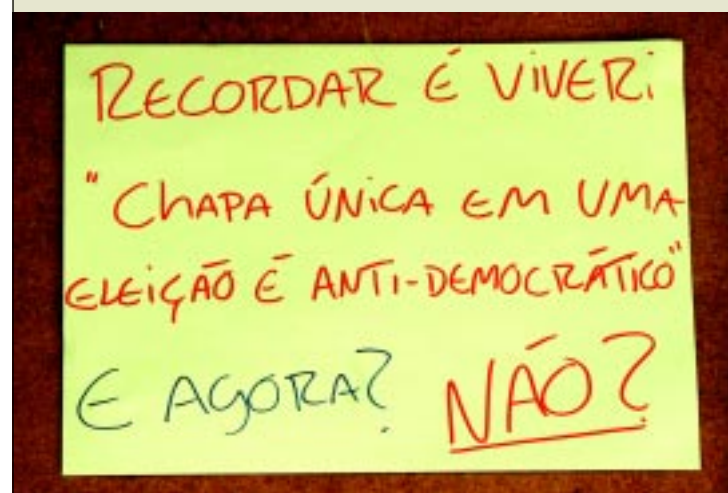 RECORDAR É VIVER:
"CHAPA ÚNICA EM UMA
ELEIÇÃO É ANTI-DEMOCRÁTICO"
E AGORA? NÃO?